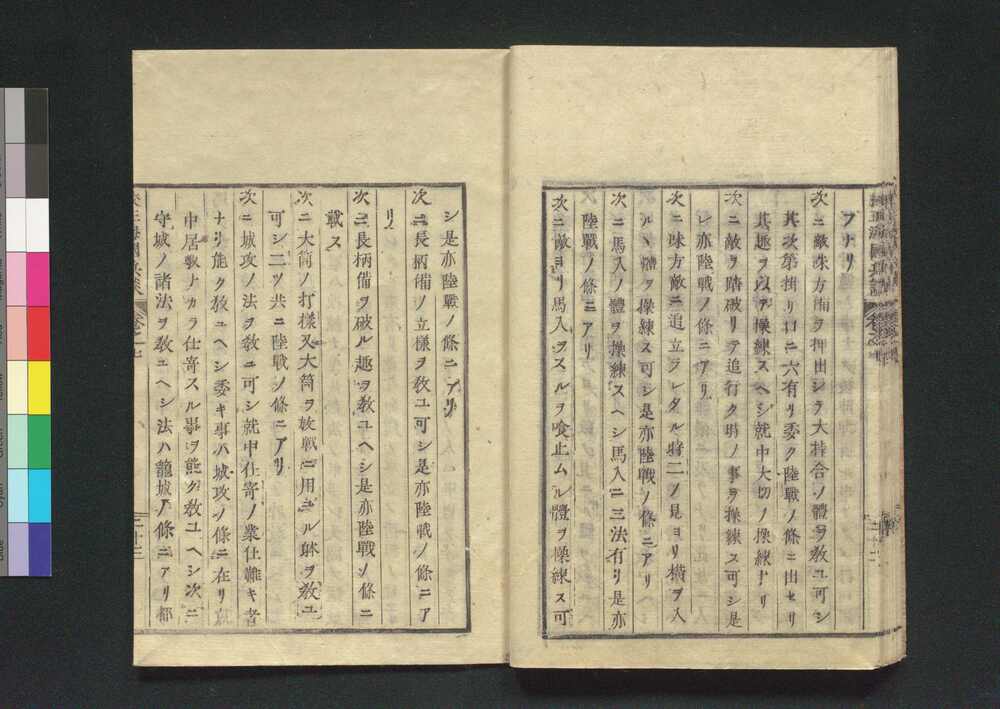 フナリ
次ニ敵味方備ヲ押出シテ大持合ノ體ヲ敎ユ可シ
其次第掛リ口ニ六有リ委ク陸戰ノ條ニ出セリ
其趣ヲ以テ操練スヘシ就中大切ノ操練ナリ
次ニ敵ヲ踏破リテ追行ク時ノ事ヲ操練ス可シ是
レ亦陸戰ノ條ニアリ
次ニ味方敵ニ追立ラレタル時二ノ見ヨリ横ヲ入
ルヽ體ヲ操練ス可シ是亦陸戰ノ條ニアリ
次ニ馬入ノ體ヲ操練スヘシ馬入ニ三法有リ是亦
陸戰ノ條ニアリ
次ニ敵ヨリ馬入ヲスルヲ喰止ムル體ヲ操練ス可
シ是亦陸戰ノ條ニアリ
次ニ長柄備ノ立樣ヲ敎ユ可シ是亦陸戰ノ條ニア
リ
次ニ長柄備ヲ破ル趣ヲ敎ユヘシ是亦陸戰ノ條ニ
載ス
次ニ大筒ノ打樣又大筒ヲ攻戰ニ用ユル㕝ヲ敎ユ
可シ二ツ共ニ陸戰ノ條ニアリ
次ニ城攻ノ法ヲ敎ユ可シ就中仕寄ノ業仕難キ者
ナリ能ク敎ユヘシ委キ事ハ城攻ノ條ニ在リ
中居敷ナカラ仕寄スル事ヲ能ク敎ユヘシ次ニ
守城ノ諸法ヲ敎ユヘシ法ハ籠城ノ條ニアリ都